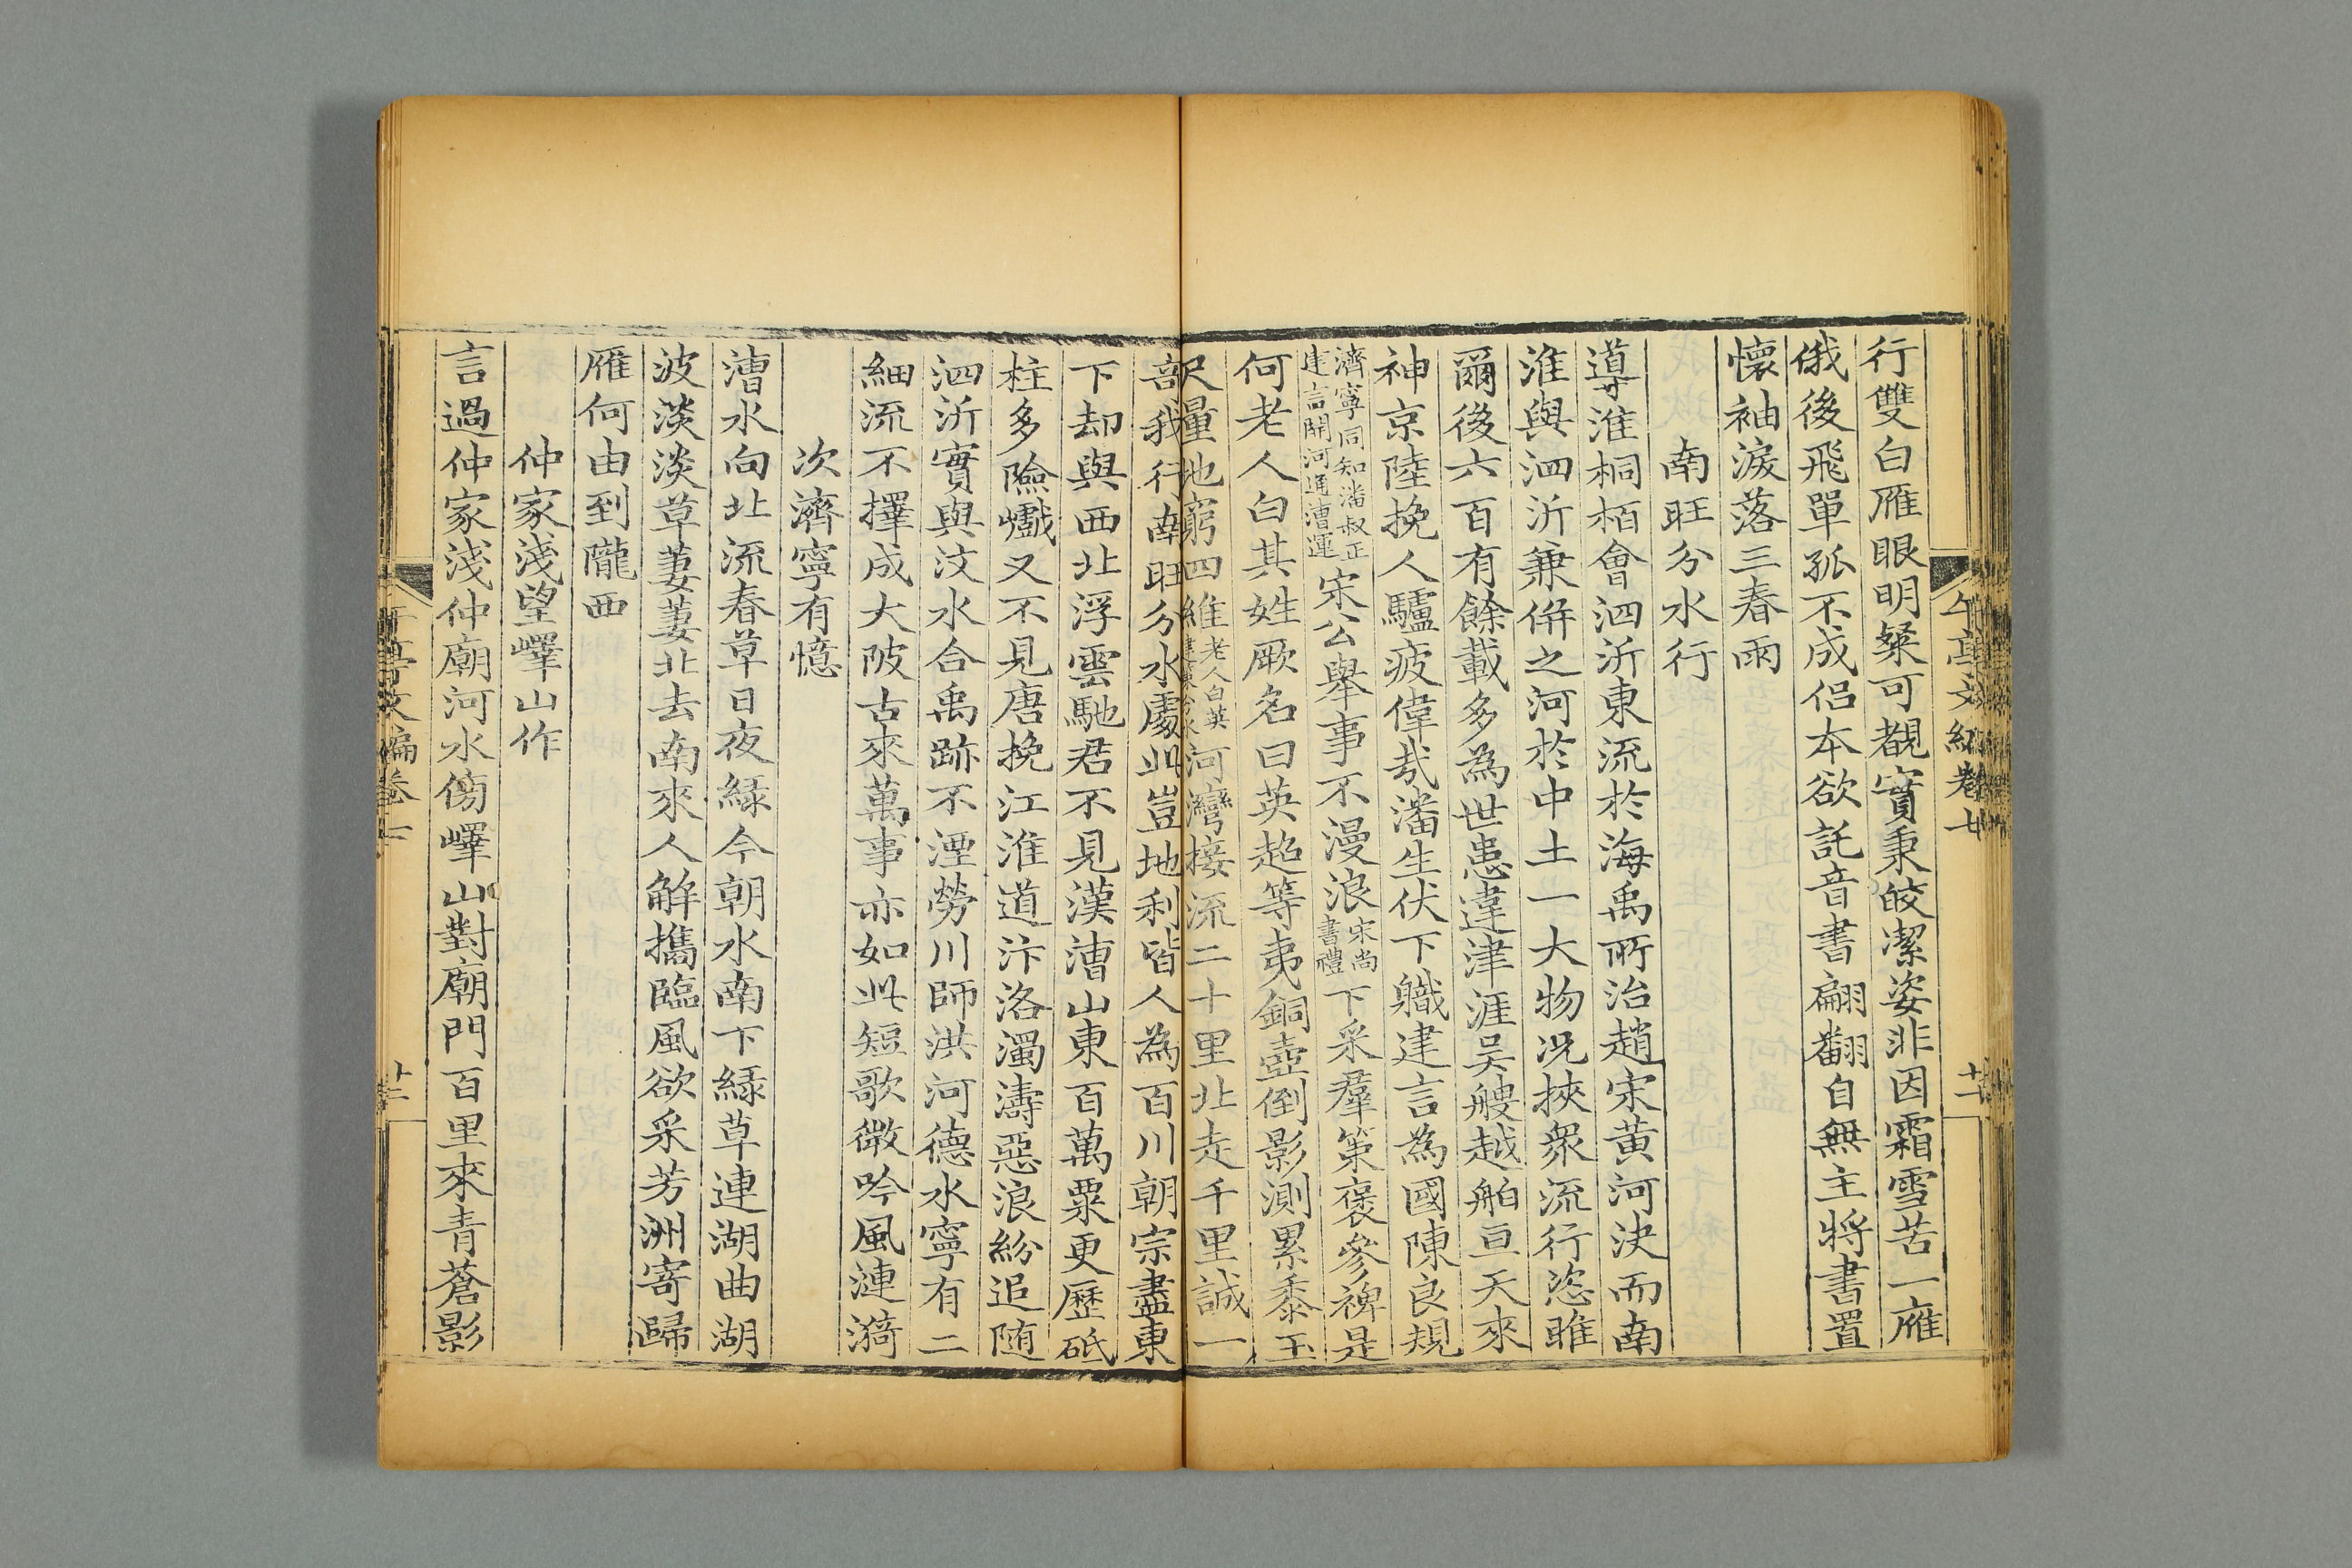 行雙白雁眼明粲可覩實秉皎潔姿非因霜雪苦一雁
俄後飛單孤不成侶本欲託音書翩翻自無主將書置
懷袖淚落三春雨
南旺分水行
導淮桐栢會泗沂東流於海禹所治趙宋黃河決而南
淮與泗沂兼併之河於中土一大物況挾衆流行恣睢
爾後六百有餘載多為世患違津涯吳艘越舶亘天來
神京陸挽人驢疲偉哉潘生伏下職建言為國陳良規
濟寧同知潘叔正建言開河通漕運宋公舉事不漫浪宋尚書禮下采羣策褒參裨是
何老人白其姓厥名曰英超等夷銅壺倒影測累黍玉
尺量地窮四維老人白英河灣接流二十里北走千里誠一
部我行南旺分水處此豈地利皆人為百川朝宗盡東
下却與西北浮雲馳君不見漢漕山東百萬粟更歷砥
柱多險巇又不見唐挽江淮道汴洛濁濤惡浪紛追随
泗沂實與汶水合禹跡不湮勞川師洪河德水寧有二
細流不擇成大陂古來萬事亦如此短歌微吟風漣漪
次濟寧有憶
漕水向北流春草日夜緑今朝水南下緑草連湖曲湖
波淡淡草萋萋北去南來人解攜臨風欲采芳洲寄歸
雁何由到隴西
仲家淺望嶧山作
言過仲家淺仲廟河水傍嶧山對廟門百里來青蒼影
午亭文編卷七
十二